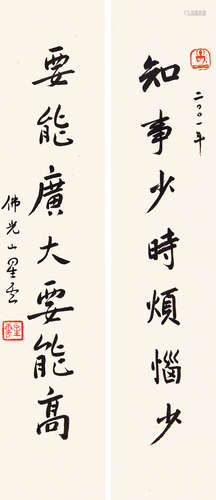 二〇〇一年
知事少時煩惱少
要能廣大要能高
佛光山星云